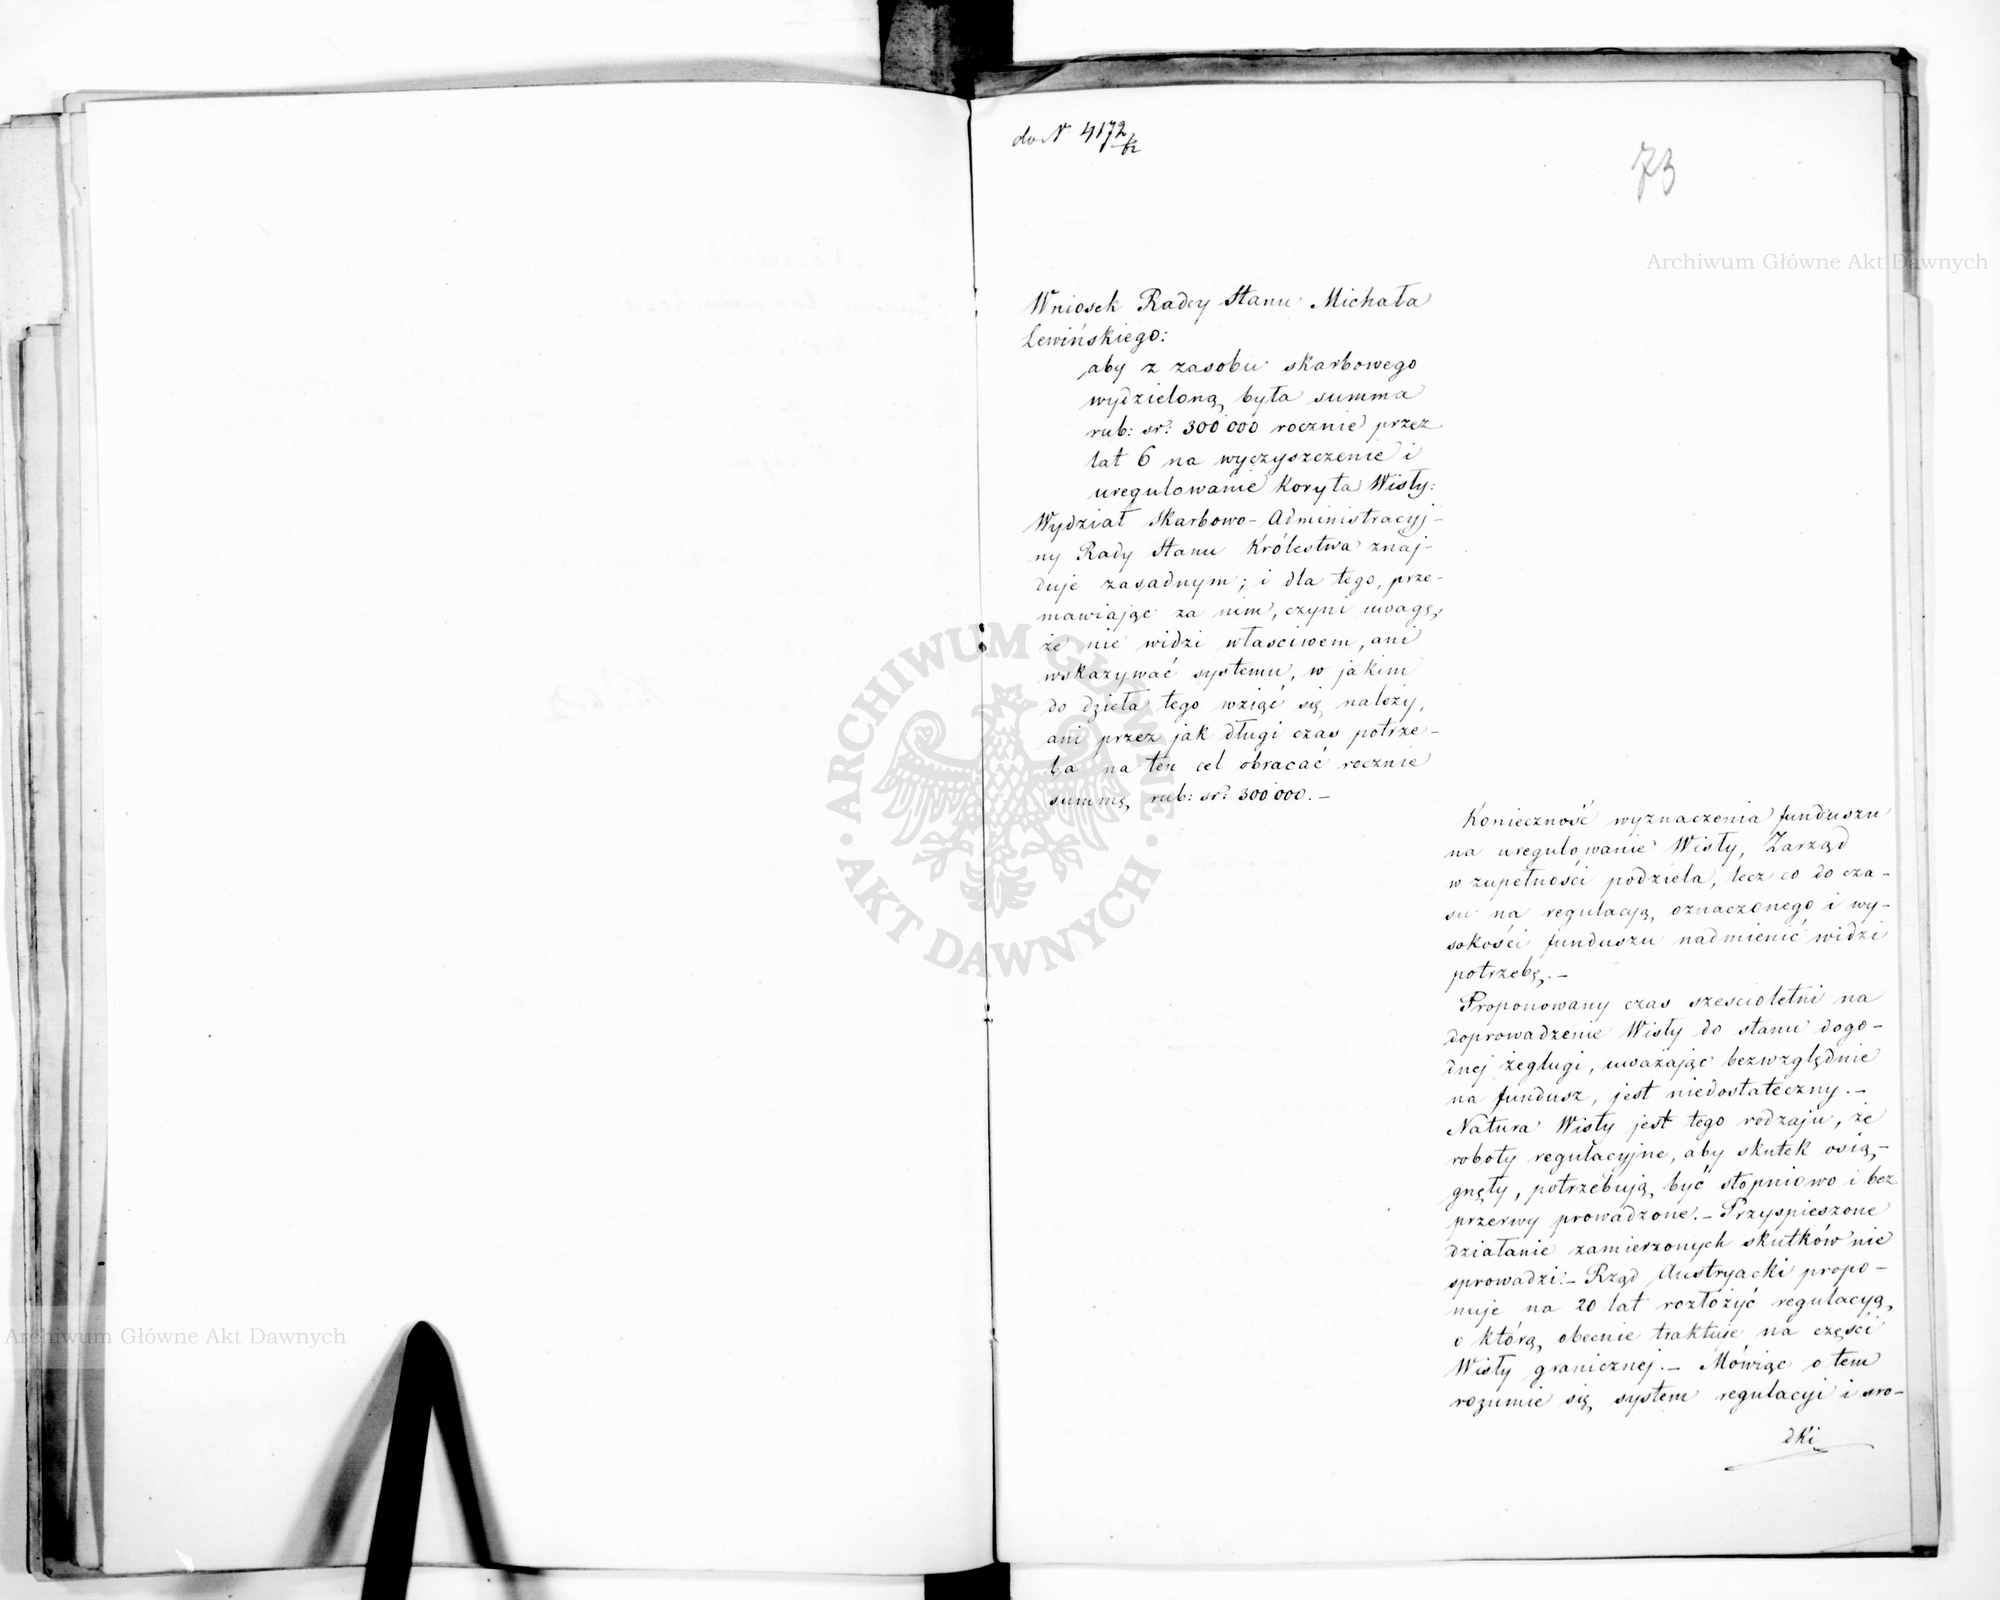 do N 4172/62
73
Archiwum Główne Akt Dawnych
Wniosek Radcy Stanu Michała
Lewińskiego:
aby z zasobu skarbowego
wydzieloną była summa
rub: sr: 300'000 rocznie przez
lat 6 na wyczyszczenie i
uregulowanie koryta Wisły:
Wydział Skarbowo-Administracyj-
ny Rady Stanu Królestwa znaj-
duje zasadnym; i dla tego, prze-
mawiając za nim, czyni uwagę,
że nie widzi właściwem, ani
wskazywać systemu, w jakim
do dzieła tego wziąć się należy,
ani przez jak długi czas potrze-
ba na ten cel obracać rocznie
summę rub: sr: 300'000.—
Konieczność wyznaczenia funduszu
na uregulowanie Wisły, Zarząd
w zupełności podziela, lecz co do cza-
su na regulacyą oznaczonego i wy-
sokości funduszu nadmienić widzi
potrzebę.—
Proponowany czas sześcioletni na
doprowadzenie Wisły do stanu dogo-
dnej żeglugi, uważając bezwzględnie
na fundusz, jest niedostateczny.—
Natura Wisły jest tego rodzaju, że
roboty regulacyjne, aby skutek osią-
gnęły, potrzebują być stopniowo i bez
przerwy prowadzone.— Przyspieszone
działanie zamierzonych skutków nie
sprowadzi.— Rząd Austryacki propo-
nuje na 20 lat rozłożyć regulacyą,
o którą obecnie traktuje na części
Wisły granicznej.— Mówiąc o tem
rozumie się system regulacyi i śro-
dki
ARCHIWUM GŁÓWNE AKT DAWNYCH
Archiwum Główne Akt Dawnych